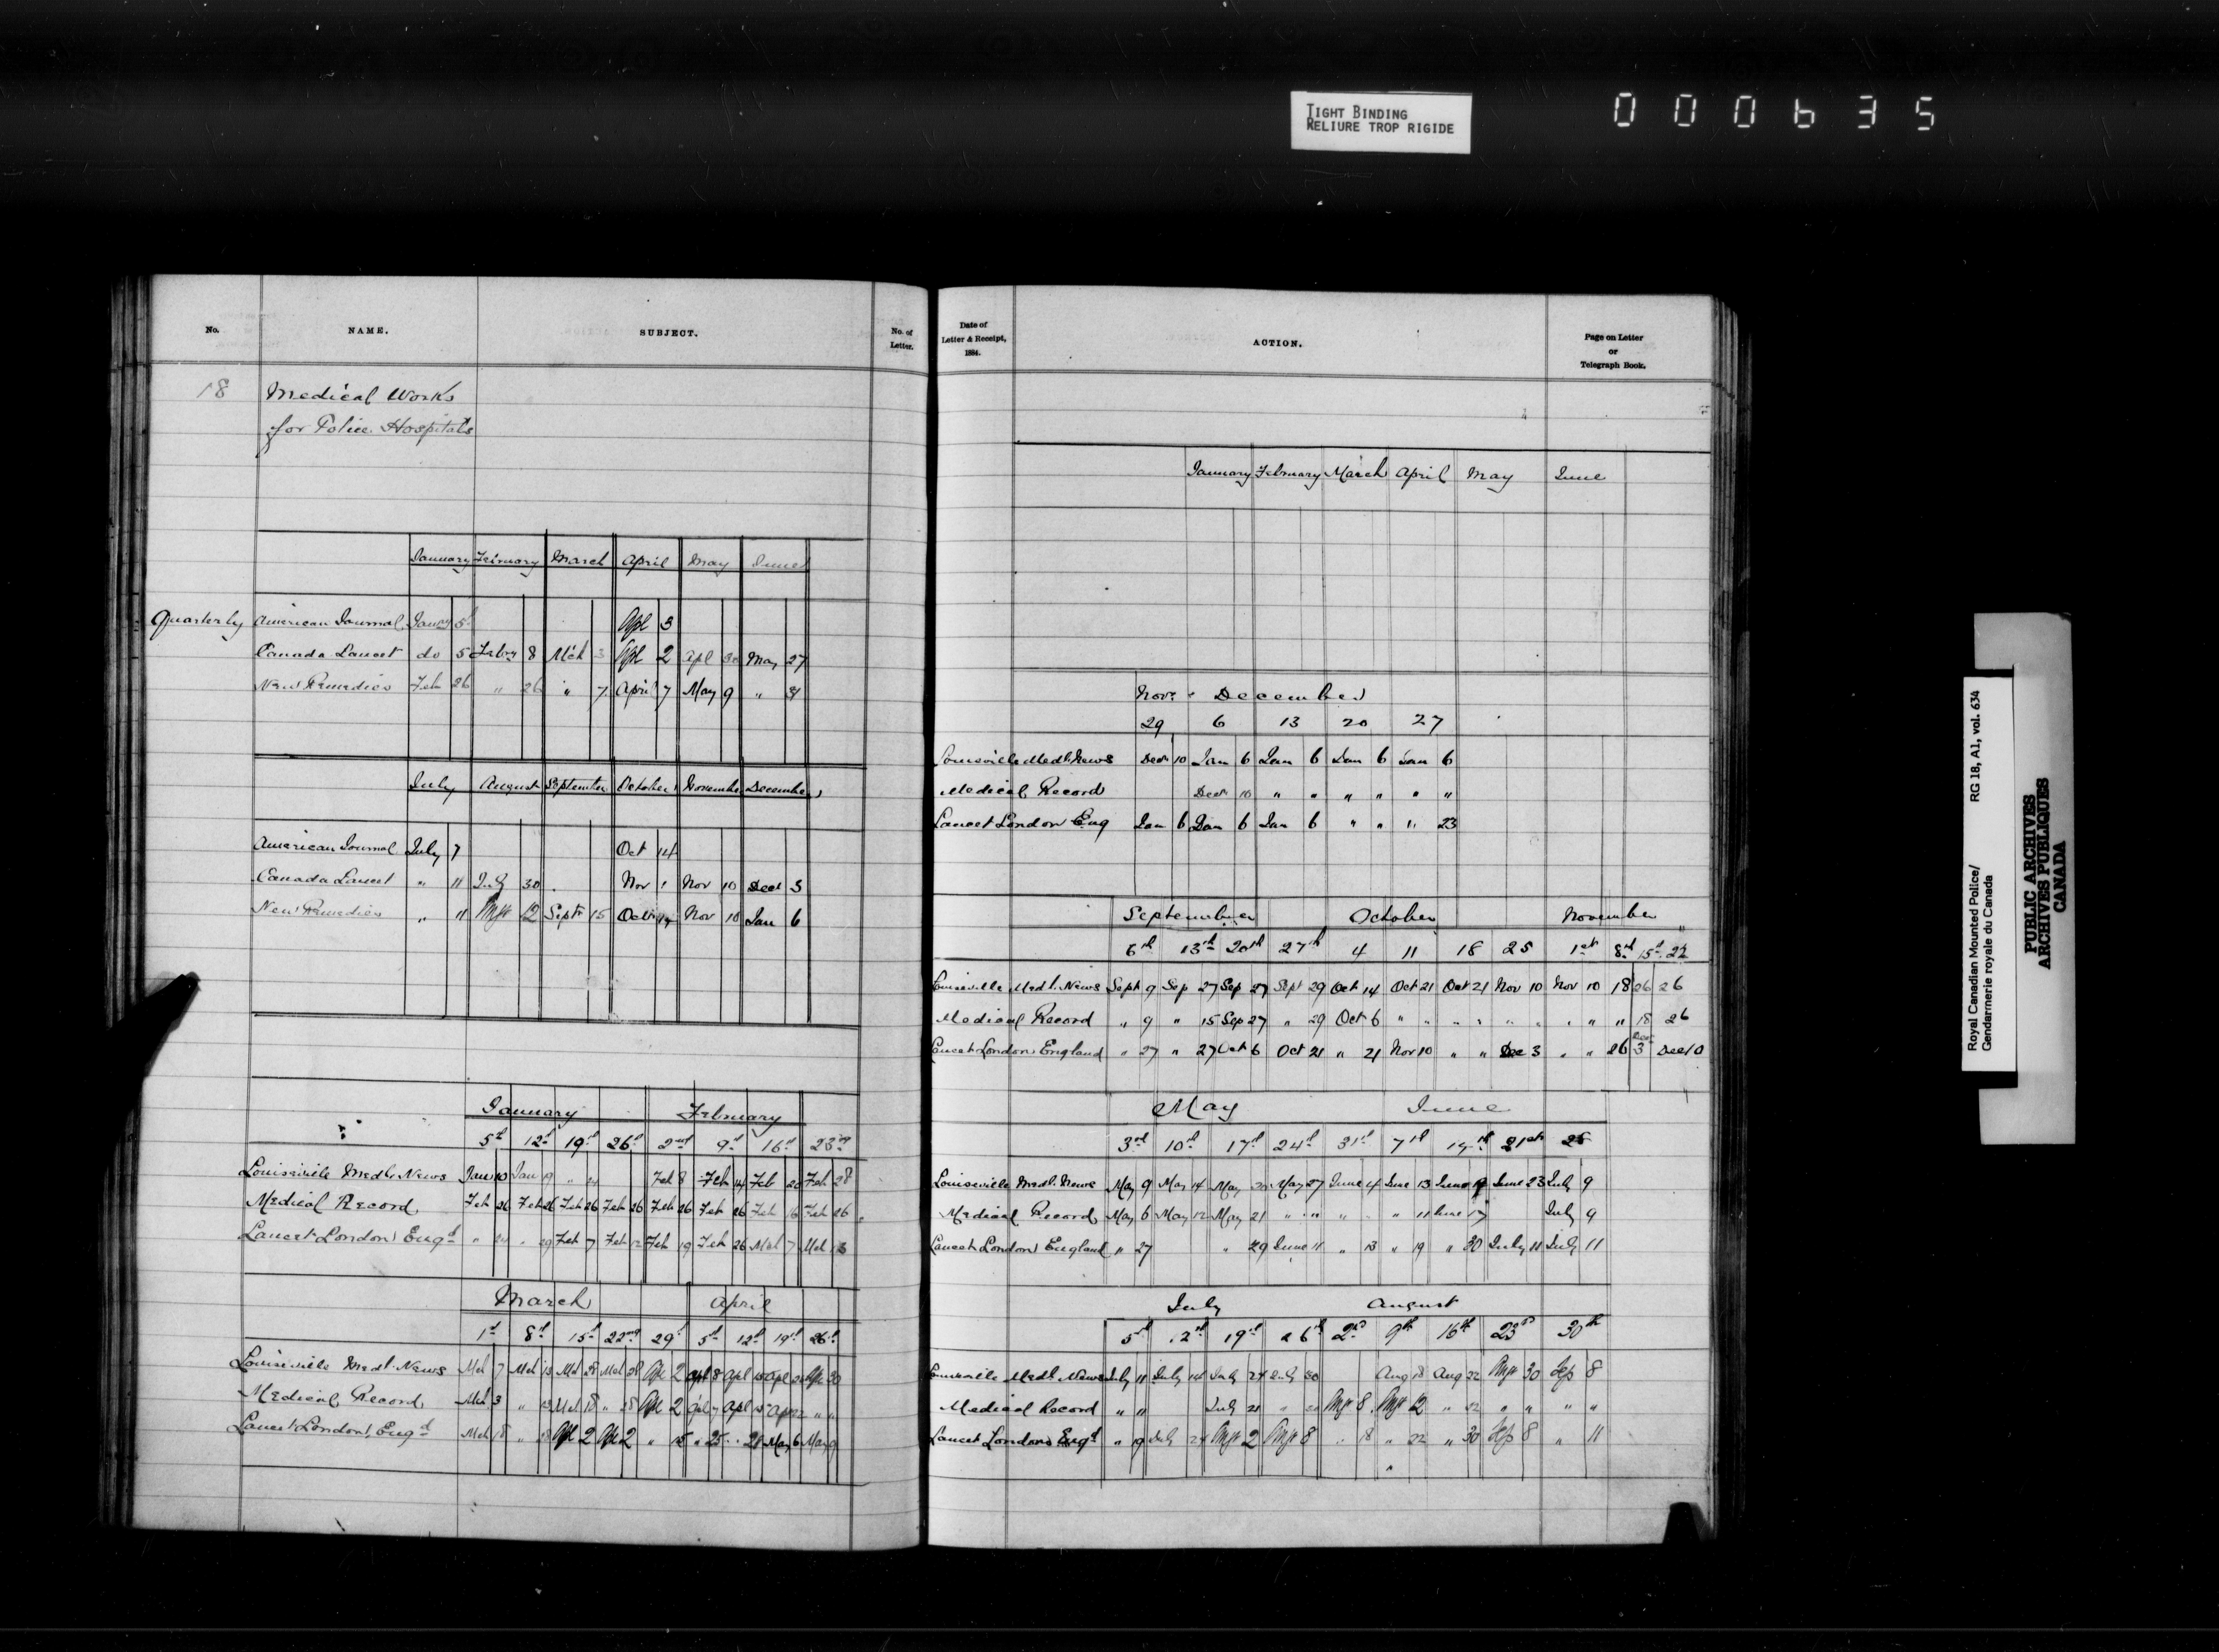 TIGHT BINDING
RELIURE TROP RIGIDE
000635
No. NAME. SUBJECT. No. of Letter.
18 Medical Works
for Police Hospitals
January February March April May June
Quarterly American Journal Janry 5th Apl 3
Canada Lancet do 5 Febry 8 Mch 3 Apl 2 Apl 30 May 27
New Remedies Feb 26 " 26 " 7 April 7 May 9 " 31
July August September October November December
American Journal July 7 Oct 14
Canada Lancet " 11 July 30 Nov 1 Nov 10 Dec 3
New Remedies " 11 Augt 12 Sept 15 Oct 14 Nov 10 Jan 6
January February
5th 12th 19th 26th 2nd 9th 16th 23rd
Louisville Medl. News Jan 10 Jan 19 " 24 Feb 8 Feb 14 Feb 20 Feb 28
Medical Record Feb 26 Feb 26 Feb 26 Feb 26 Feb 26 Feb 26 Feb 16 Feb 26
Lancet London Engd " 24 " 29 Feb 7 Feb 12 Feb 19 Feb 26 Mch 7 Mch 13
March April
1st 8th 15th 22nd 29th 5th 12th 19th 26th
Louisville Medl. News Mch 7 Mch 13 Mch 28 Mch 28 Apl 2 Apl 8 Apl 15 Apl Apl 30
Medical Record Mch 3 " 13 Mch 18 " 28 Apl 2 Apl 7 Apl 15 Apr 22 " "
Lancet London Engd Mch 18 " 28 Apl 2 Apl 2 " 15 " 25 " 28 May 6 May 9
Date of Letter & Receipt, 1884. ACTION. Page on Letter or Telegraph Book.
January February March April May June
Novr. December
29 6 13 20 27
Louisville Medl. News Decr 10 Jan 6 Jan 6 Jan 6 Jan 6
Medical Record Decr 10 " " " " " "
Lancet London Eng Jan 6 Jan 6 Jan 6 " " " 23
September October November
6th 13th 20th 27th 4 11 18 25 1st 8th 15th 22
Louisville Medl. News Sept 9 Sep 27 Sep 27 Sept 29 Oct 14 Oct 21 Oct 21 Nov 10 Nov 10 18 26 26
Medical Record " 9 " 15 Sep 27 " 29 Oct 6 " " " " " " " " " 18 26
Lancet London England " 27 " 27 Oct 6 Oct 21 " 21 Nov 10 " " Dec 3 " " 26 Dec 3 Dec 10
May June
3rd 10th 17th 24th 31st 7th 14th 21st 28
Louisville Medl. News May 9 May 14 May 20 May 27 June 4 June 13 June 19 June 23 July 9
Medical Record May 6 May 12 May 21 " " " " 11 June 17 July 9
Lancet London England " 27 " 29 June 11 " 13 " 19 " 30 July 11 July 11
July August
5th 12th 19th 26th 2nd 9th 16th 23rd 30th
Louisville Medl. News July 11 July 14 July 24 July 30 Aug 18 Aug 22 Augt 30 Sep 8
Medical Record " 11 July 21 " Augt 8 Augt 12 " 22 " " " "
Lancet London Engd " 19 July 24 Augt 2 Augt 8 " 18 " 22 " 30 Sep 8 " 11
Royal Canadian Mounted Police/ RG 18, A1, vol. 634
Gendarmerie royale du Canada
PUBLIC ARCHIVES
ARCHIVES PUBLIQUES
CANADA